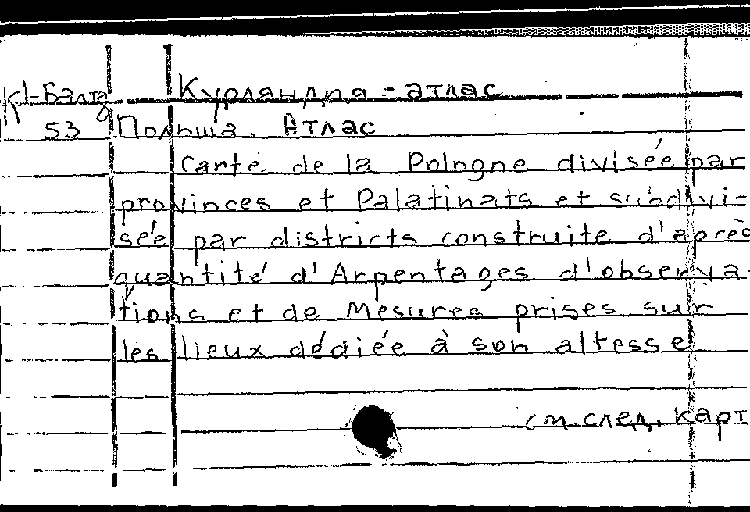 К1-Балтд Курляндия - атлас
53 Польша. Атлас
Carte de la Pologne divisée par
provinces et Palatinats et subdivi-
sée par districts construite d'après
quantité d'Arpentages d'observa-
tions et de Mesures prises sur
les lieux dédiée à son altesse
см. след. карт